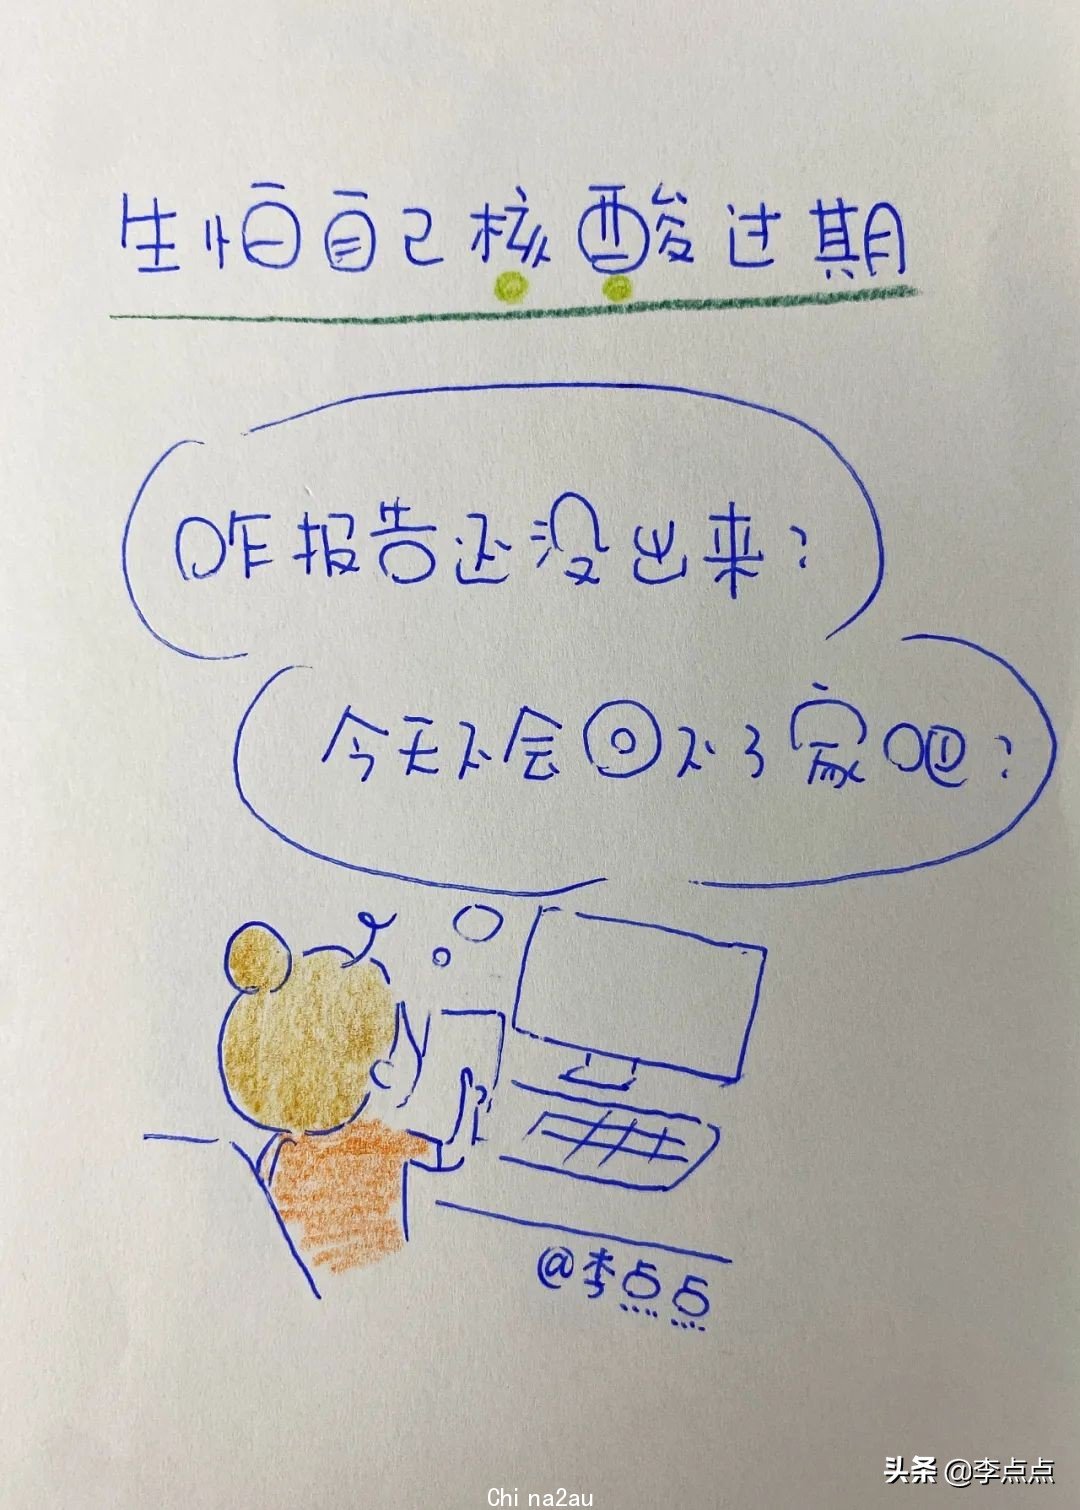 生怕自己核酸过期
咋报告还没出来？
今天不会回不了家吧？
@李点点
头条 @李点点
China2au